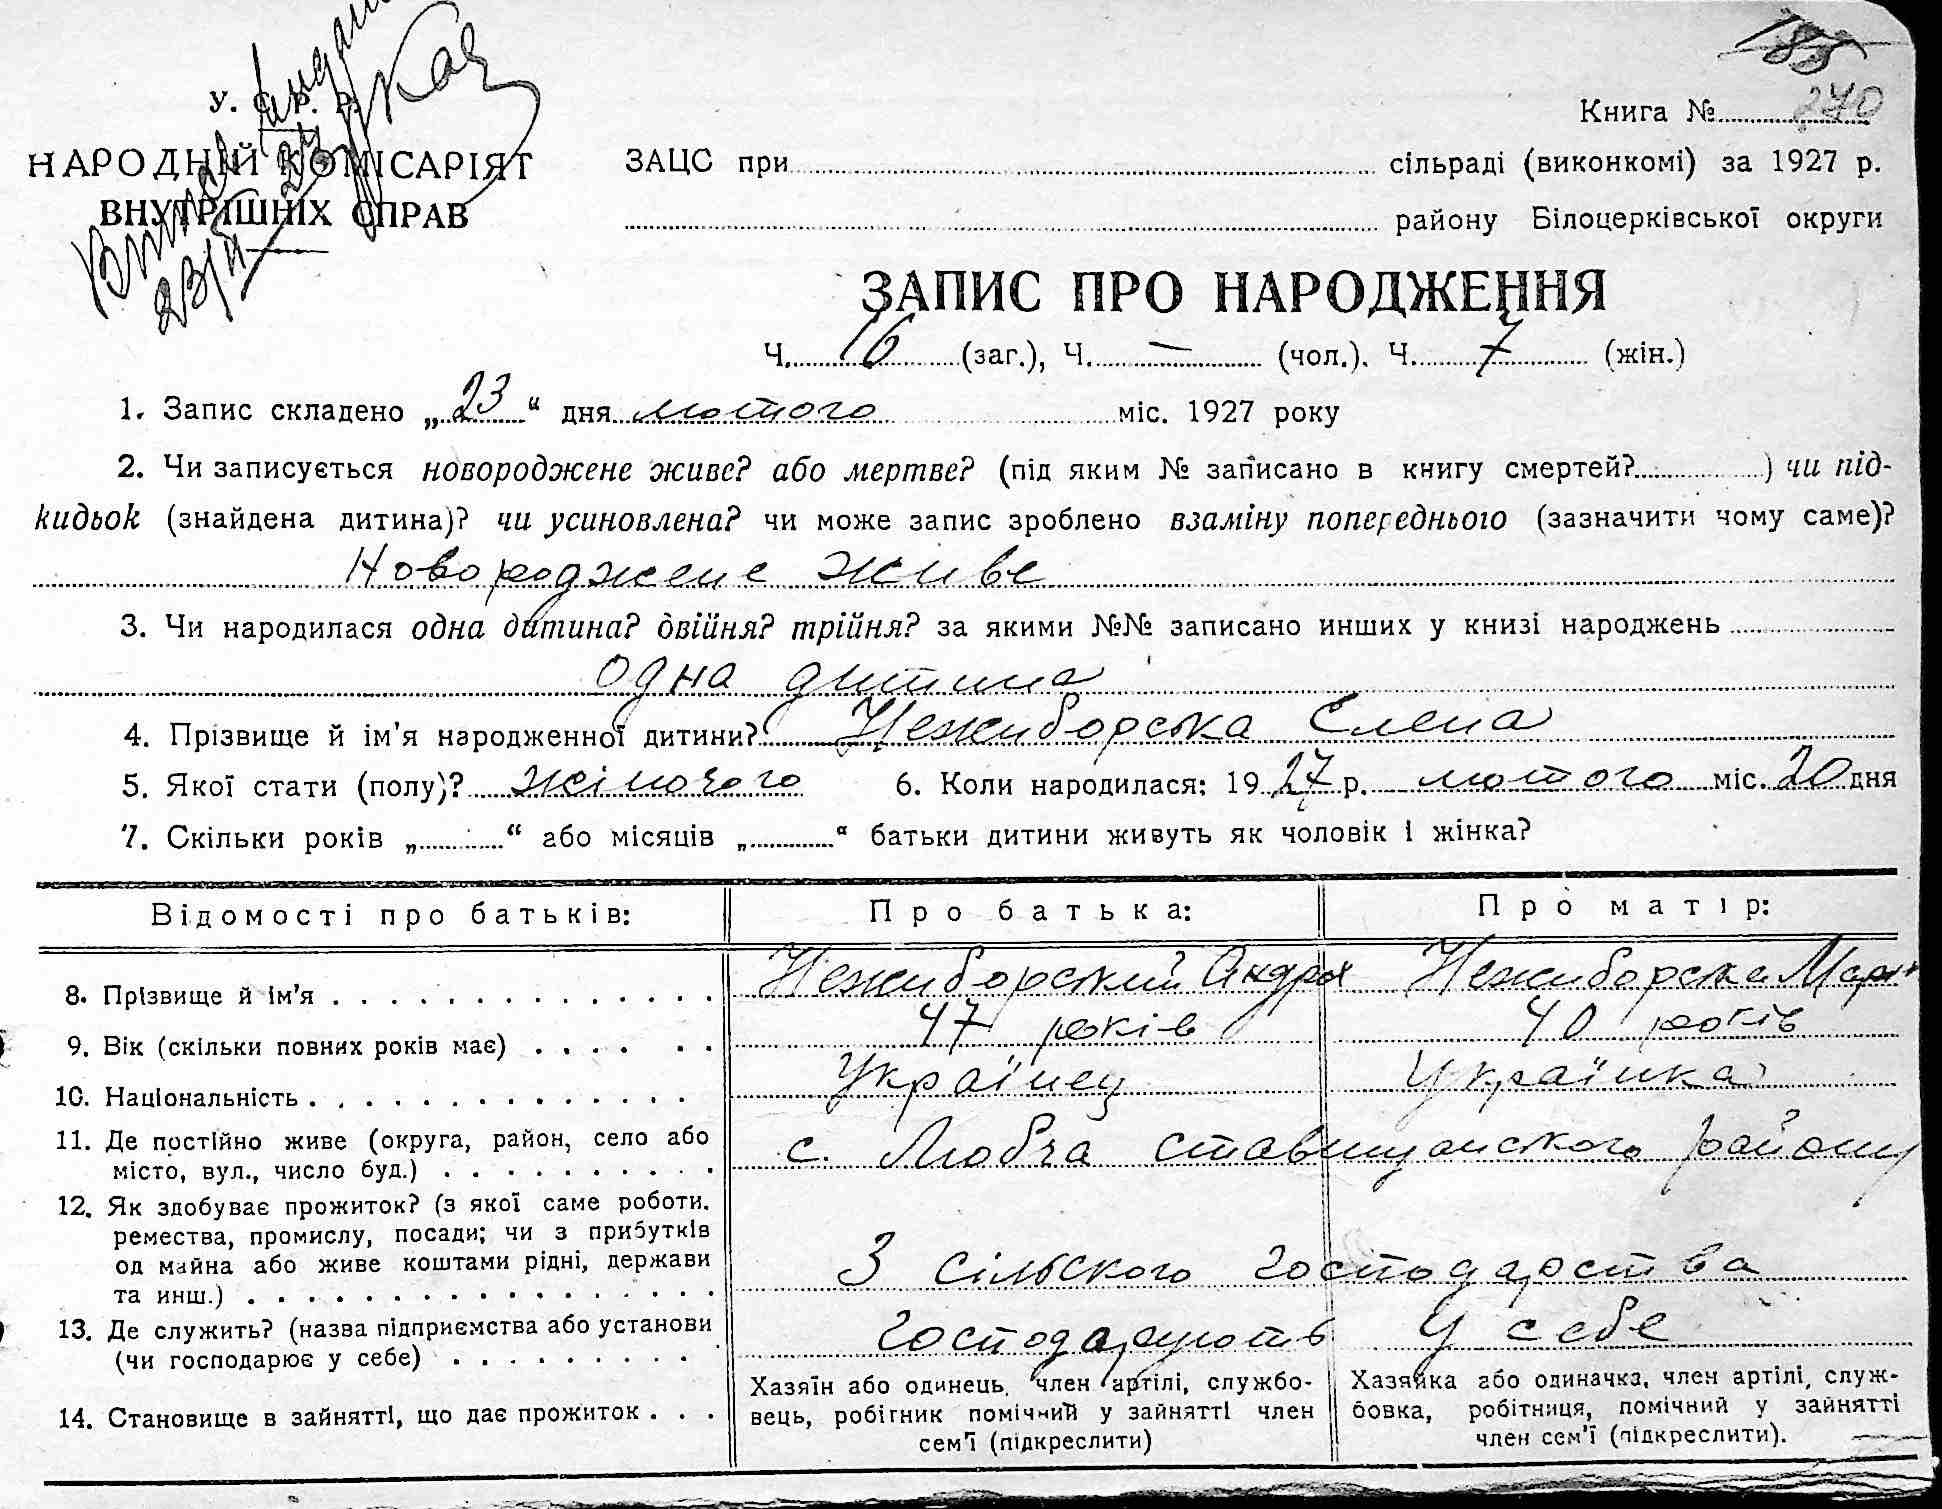 У. С. Р. Р.
НАРОДНІЙ КОМІСАРІЯТ
ВНУТРІШНІХ СПРАВ
185
Книга № 240
ЗАЦС при сільраді (виконкомі) за 1927 р.
району Білоцерківської округи
ЗАПИС ПРО НАРОДЖЕННЯ
Ч. 16 (заг.), Ч. — (чол.). Ч. 7 (жін.)
1. Запис складено „23“ дня лютого міс. 1927 року
2. Чи записується новороджене живе? або мертве? (під яким № записано в книгу смертей?) чи під-
кидьок (знайдена дитина)? чи усиновлена? чи може запис зроблено взаміну попереднього (зазначити чому саме)?
Новороджене живе
3. Чи народилася одна дитина? двійня? трійня? за якими №№ записано инших у книзі народжень
одна дитина
4. Прізвище й ім'я народженної дитини? Неживорська Єлена
5. Якої стати (полу)? жіночого 6. Коли народилася: 1927 р. лютого міс. 20 дня
7. Скільки років „ “ або місяців „ “ батьки дитини живуть як чоловік і жінка?
Відомості про батьків: Про батька: Про матір:
8. Прізвище й ім'я Нежиборський Андрій Нежиборська
9. Вік (скільки повних років має) 47 років 40 років
10. Національність Українец Українка
11. Де постійно живе (округа, район, село або
місто, вул., число буд.) с. Любча ставищанського району
12. Як здобуває прожиток? (з якої саме роботи.
ремества, промислу, посади; чи з прибутків
од майна або живе коштами рідні, держави
та инш.) З сільского господарства
13. Де служить? (назва підприємства або установи
(чи господарює у себе) господарують У себе
14. Становище в зайнятті, що дає прожиток
Хазяїн або одинець, член артілі, службо-
вець, робітник помічний у зайнятті член
сем'ї (підкреслити)
Хазяйка або одиначка, член артілі, служ-
бовка, робітниця, помічний у зайнятті
член сем'ї (підкреслити).